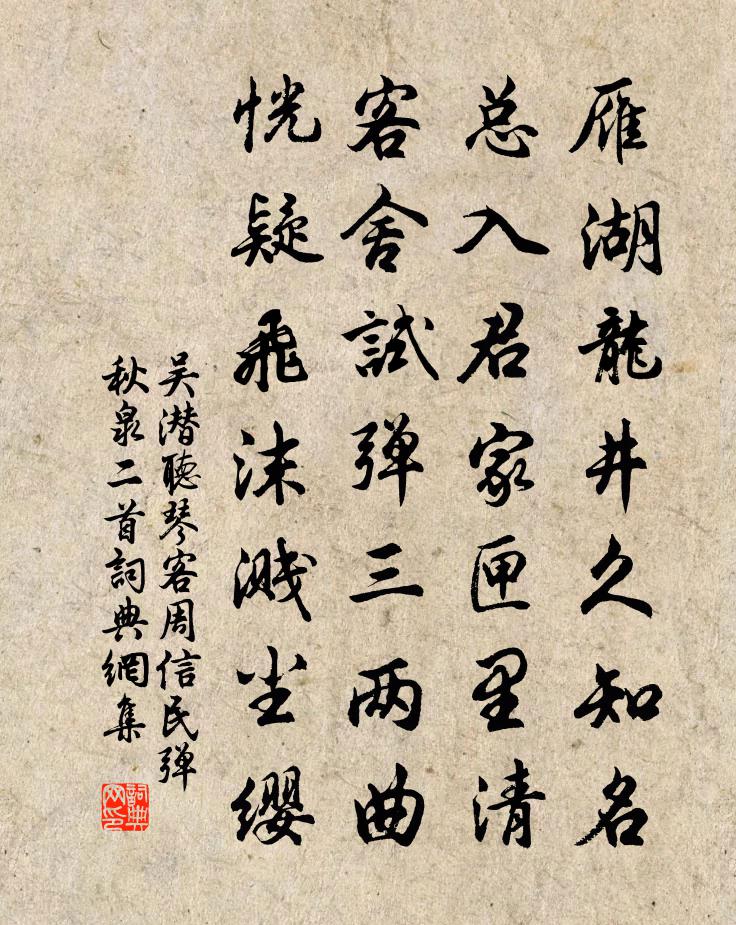 雁湖龍井久知名
总入君家匣里清
客舍試弹三两曲
恍疑飛沫溅尘缨
吴潜聽琴客周信民弹
秋泉二首詞典網集
詞典
网印